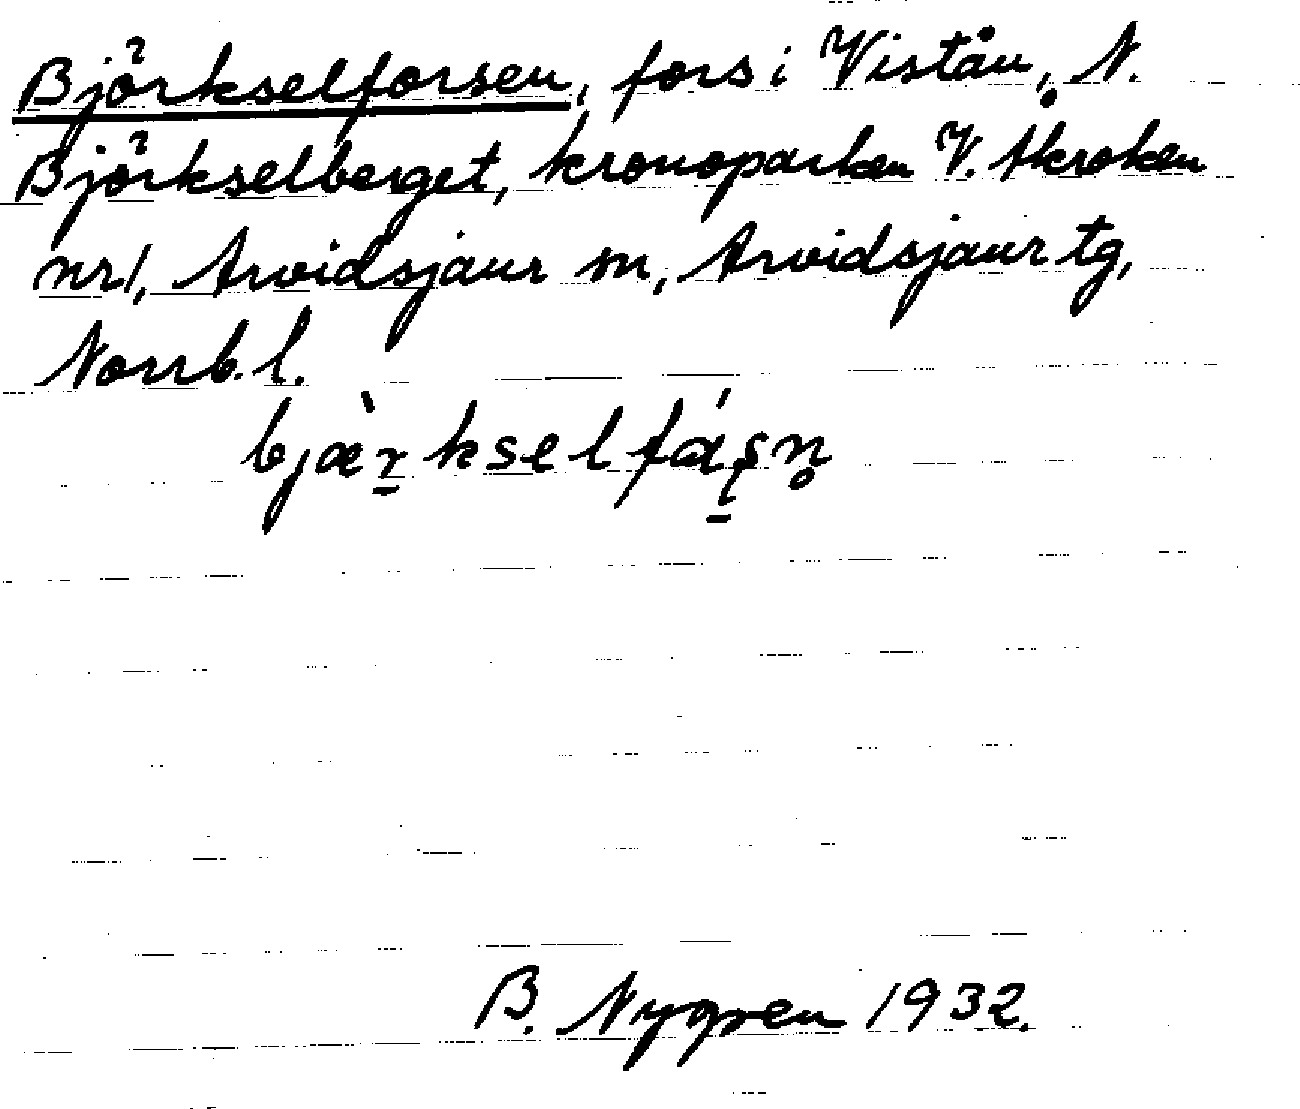 Björkselforsen, fors i Viståu, N.
Björkselberget, kronoparken V. Åkroken
nr 1, Arvidsjaur sn, Arvidsjaur tg,
Norrb. l.
bjæ̀r̠kselfáʂn̥
B. Nygren 1932.